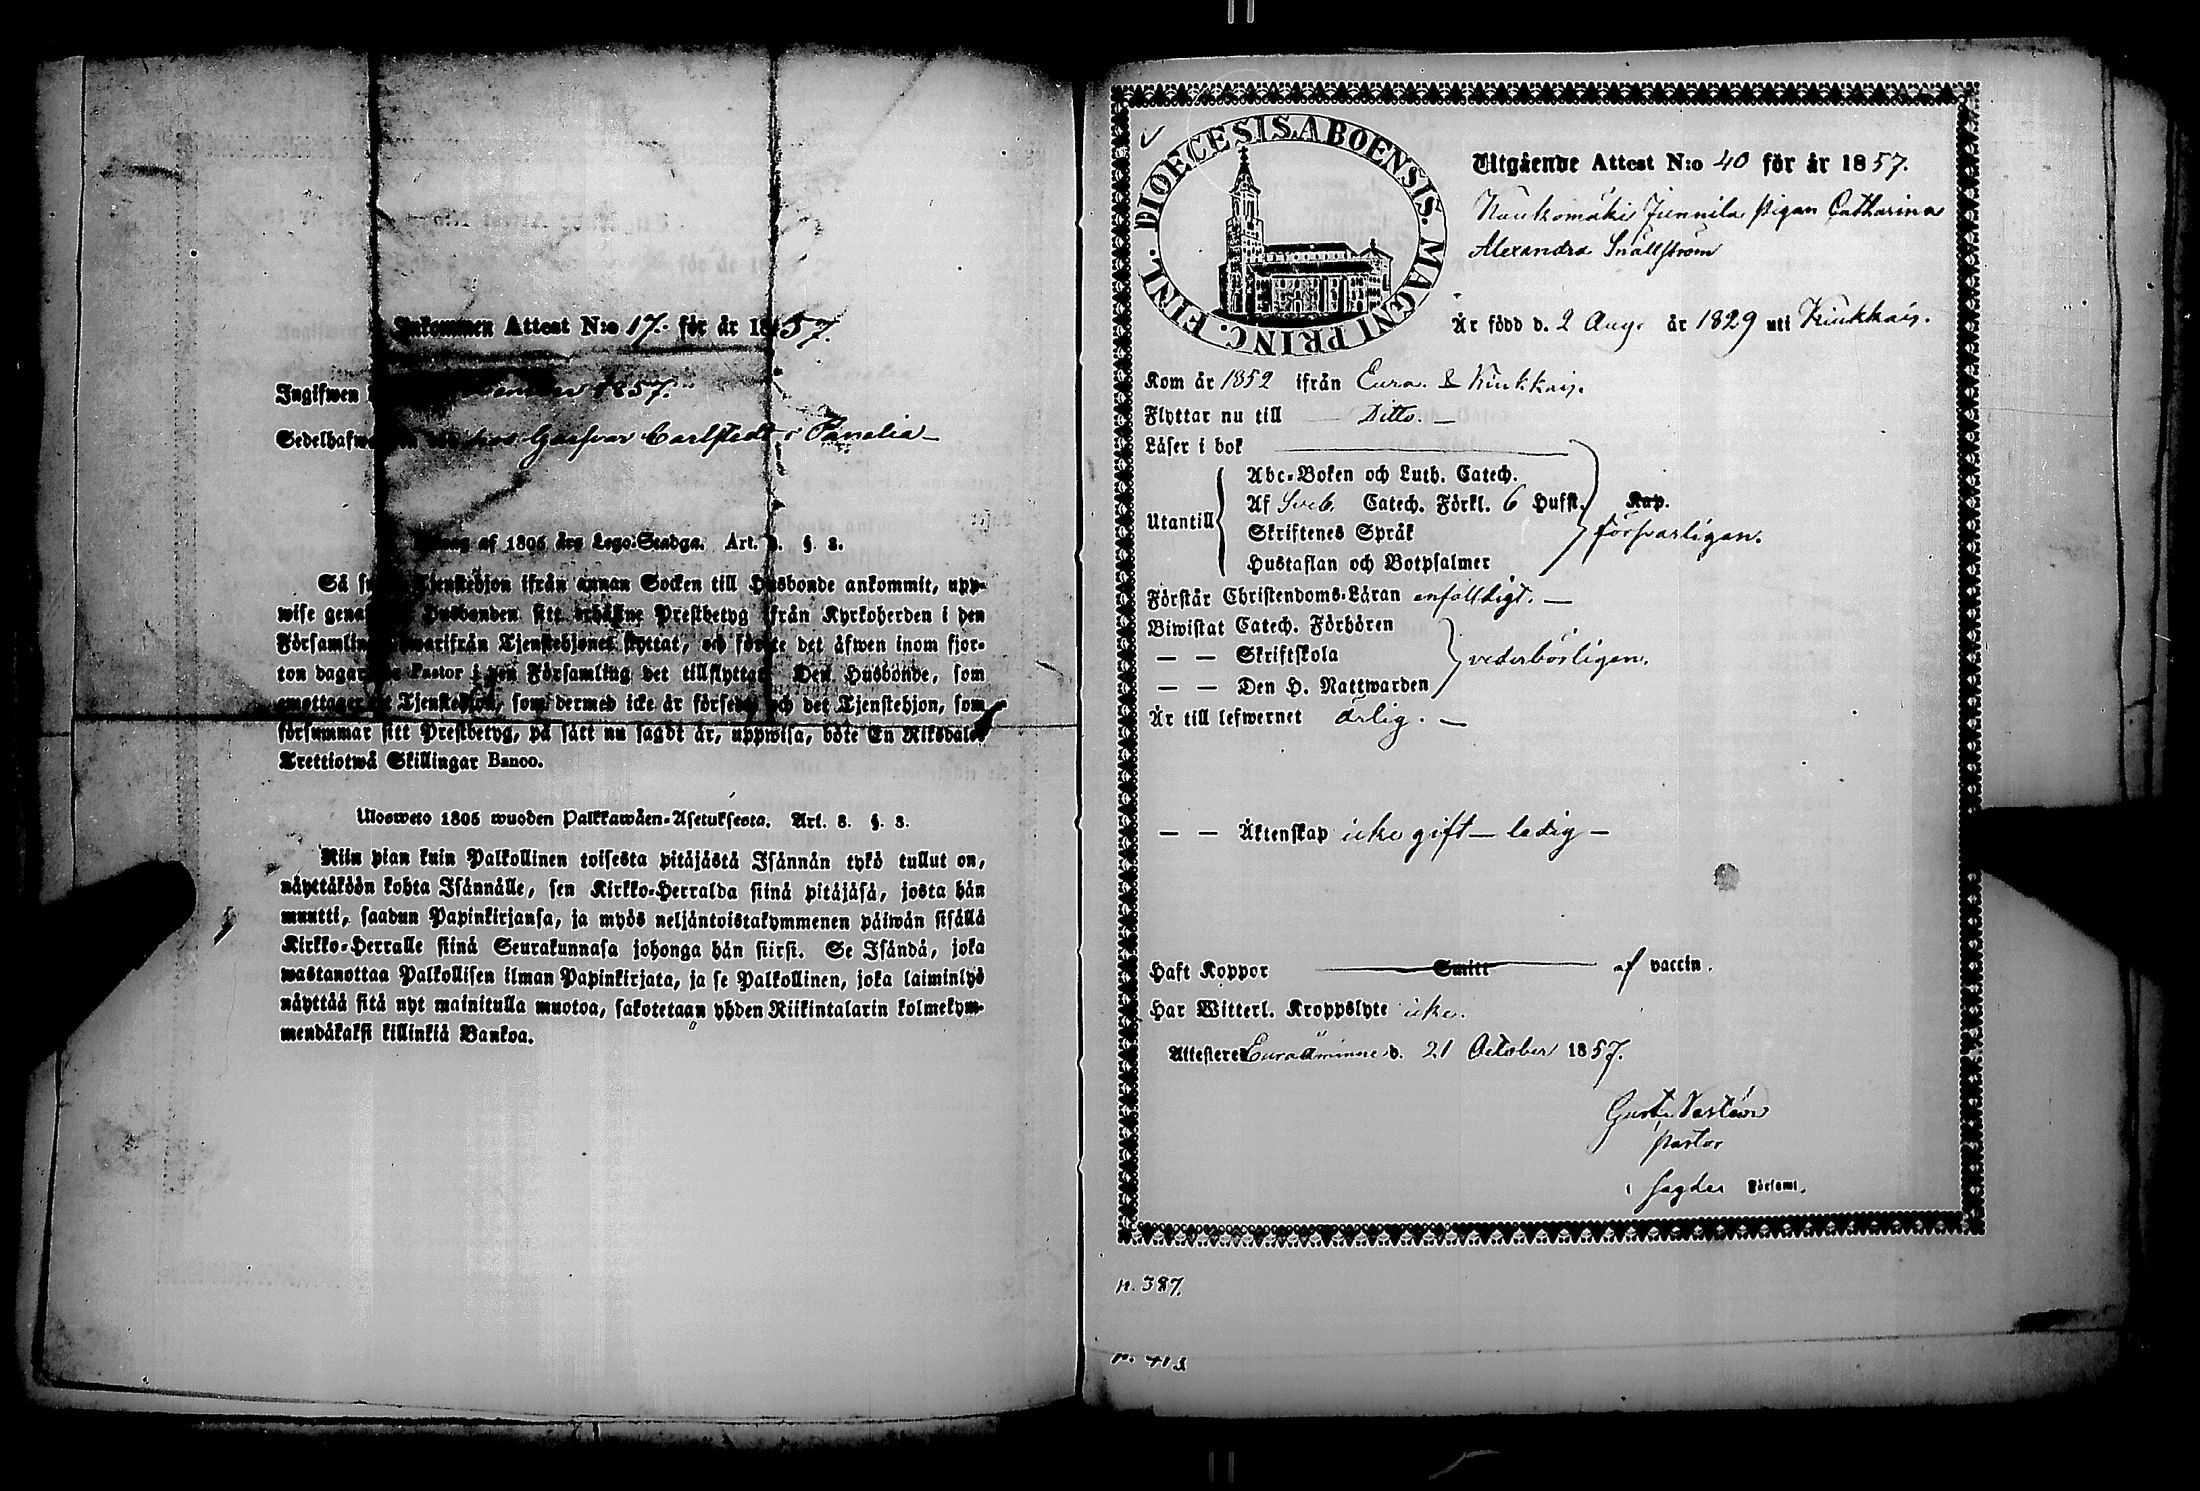 Inkommen Attest N:o 17. för år 1857.
Ingifwen 1857.
hos Gaspar Carlstedt i Panelia
af 1805 års Lego-Stadga. Art. 8. §. 3.
Så Tjenstehjon ifrån annan Socken till Husbonde ankommit, upp-
wise Husbonden sitt erhållne Prestbetyg ifrån Kyrkoherden i den
Församling hwarifrån Tjenstehjonet flyttat, och förete det äfwen inom fjor-
ton dagar Pastor i den Församling det tillflyttat. Den Husbonde, som
emottager Tjenstehjon, som dermed icke är försedt och det Tjenstehjon, som
försummar sitt Prestbetyg, på sätt nu sagdt är, uppwisa, böte En Riksdaler
Trettiotwå Skillingar Banco.
Ulosweto 1805 wuoden Palkkawäen-Asetuksesta. Art. 8. §. 3.
Niin pian kuin Palkollinen toisesta pitäjästä Isännän tykö tullut on,
näyttäköön kohta Isännälle, sen Kirkko-Herralda siinä pitäjäsä, josta hän
muutti, saadun Papinkirjansa, ja myös neljäntoistakymmenen päiwän sisällä
Kirkko-Herralle siinä Seurakunnasa johonga hän siirsi. Se Isändä, joka
wastanottaa Palkollisen ilman Papinkirjata, ja se Palkollinen, joka laiminlyö
näyttää sitä nyt mainitulla muotoa, sakotetaan yhden Riikintalarin kolmekym-
mendäkaksi killinkiä Bankoa.
DIOECESIS ABOENSIS. MAGNI PRINC. FINL.
Utgående Attest N:o 40 för år 1857.
Kaukomäki Junnila pigan Catharina
Alexandra Snällström
Är född d. 2 Aug. år 1829 uti Kiukkais.
Kom år 1852 ifrån Eura & Kiukkais.
Flyttar nu till Ditto. —
Läser i bok
Abc-Boken och Luth. Catech.
Utantill Af Sveb. Catech. Förkl. 6 Hufst. Kap.
Skriftenes Språk försvarligen.
Hustaflan och Botpsalmer
Förstår Christendoms-Läran enfalldigt. —
Biwistat Catech. Förhören
— — Skriftskola vederbörligen.
— — Den H. Nattwarden
Är till lefwernet ärlig. —
— — Äktenskap icke gift — ledig —
Haft Koppor Smitt af vaccin.
Har Witterl. Kroppslyte icke.
Attesterer Euraåminne d. 21 October 1857.
Gust.
pastor
i sagde Församl.
p. 387.
p. 413